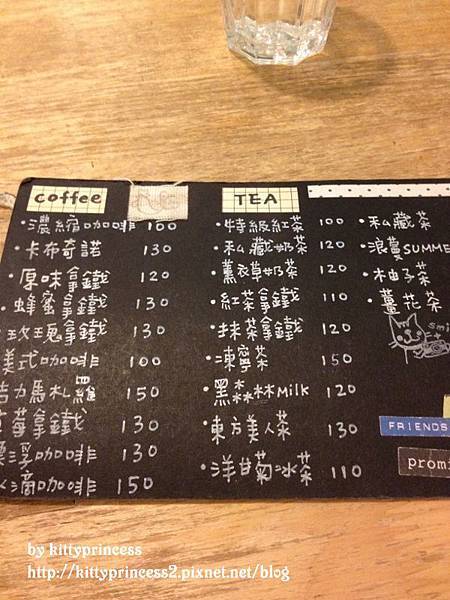 coffee
·濃縮咖啡 100
·卡布奇諾 130
·原味拿鐵 120
·蜂蜜拿鐵 130
玫瑰拿鐵 130
美式咖啡 100
吉力馬札羅 150
莓拿鐵 130
漂浮咖啡 130
滴咖啡 150
TEA
·特級紅茶 100
·私藏奶茶 120
·薰衣草奶茶 120
·紅茶拿鐵 110
·抹茶拿鐵 120
·凍寧茶 150
·黑森林Milk 120
·東方美人茶 130
·洋甘菊冰茶 110
·私藏茶
·浪漫SUMME
·柚子茶
·薑花茶
smi
FRIENDS
promi
by kittyprincess
http://kittyprincess2.pixnet.net/blog